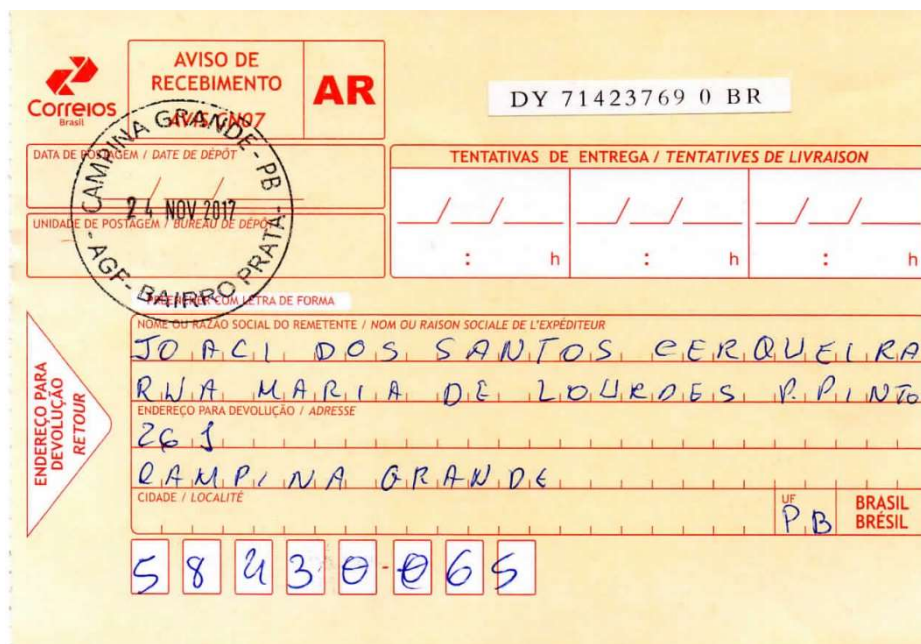 Correios
Brasil
AVISO DE
RECEBIMENTO
AR
DY 71423769 0 BR
CAMPINA GRANDE - PB
24 NOV 2017
- AGF - BAIRRO PRATA -
DATA DE POSTAGEM / DATE DE DÉPÔT
UNIDADE DE POSTAGEM / BUREAU DE DÉPÔT
TENTATIVAS DE ENTREGA / TENTATIVES DE LIVRAISON
: h : h : h
PREENCHER COM LETRA DE FORMA
ENDEREÇO PARA
DEVOLUÇÃO
RETOUR
NOME OU RAZÃO SOCIAL DO REMETENTE / NOM OU RAISON SOCIALE DE L'EXPÉDITEUR
JOACI DOS SANTOS CERQUEIRA
RUA MARIA DE LOURDES P. PINTO
ENDEREÇO PARA DEVOLUÇÃO / ADRESSE
261
CAMPINA GRANDE
CIDADE / LOCALITÉ
UF
PB
BRASIL
BRÉSIL
58430-065